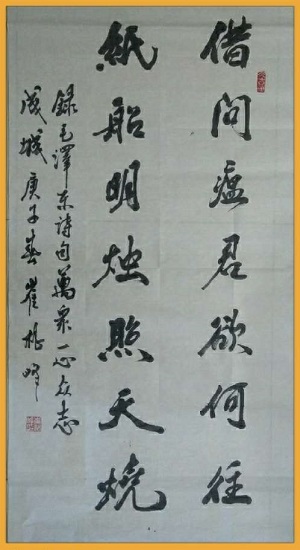 借问瘟君欲何往
紙船明烛照天燒
錄毛澤东诗句萬眾一心众志
成城庚子春崔桃峰